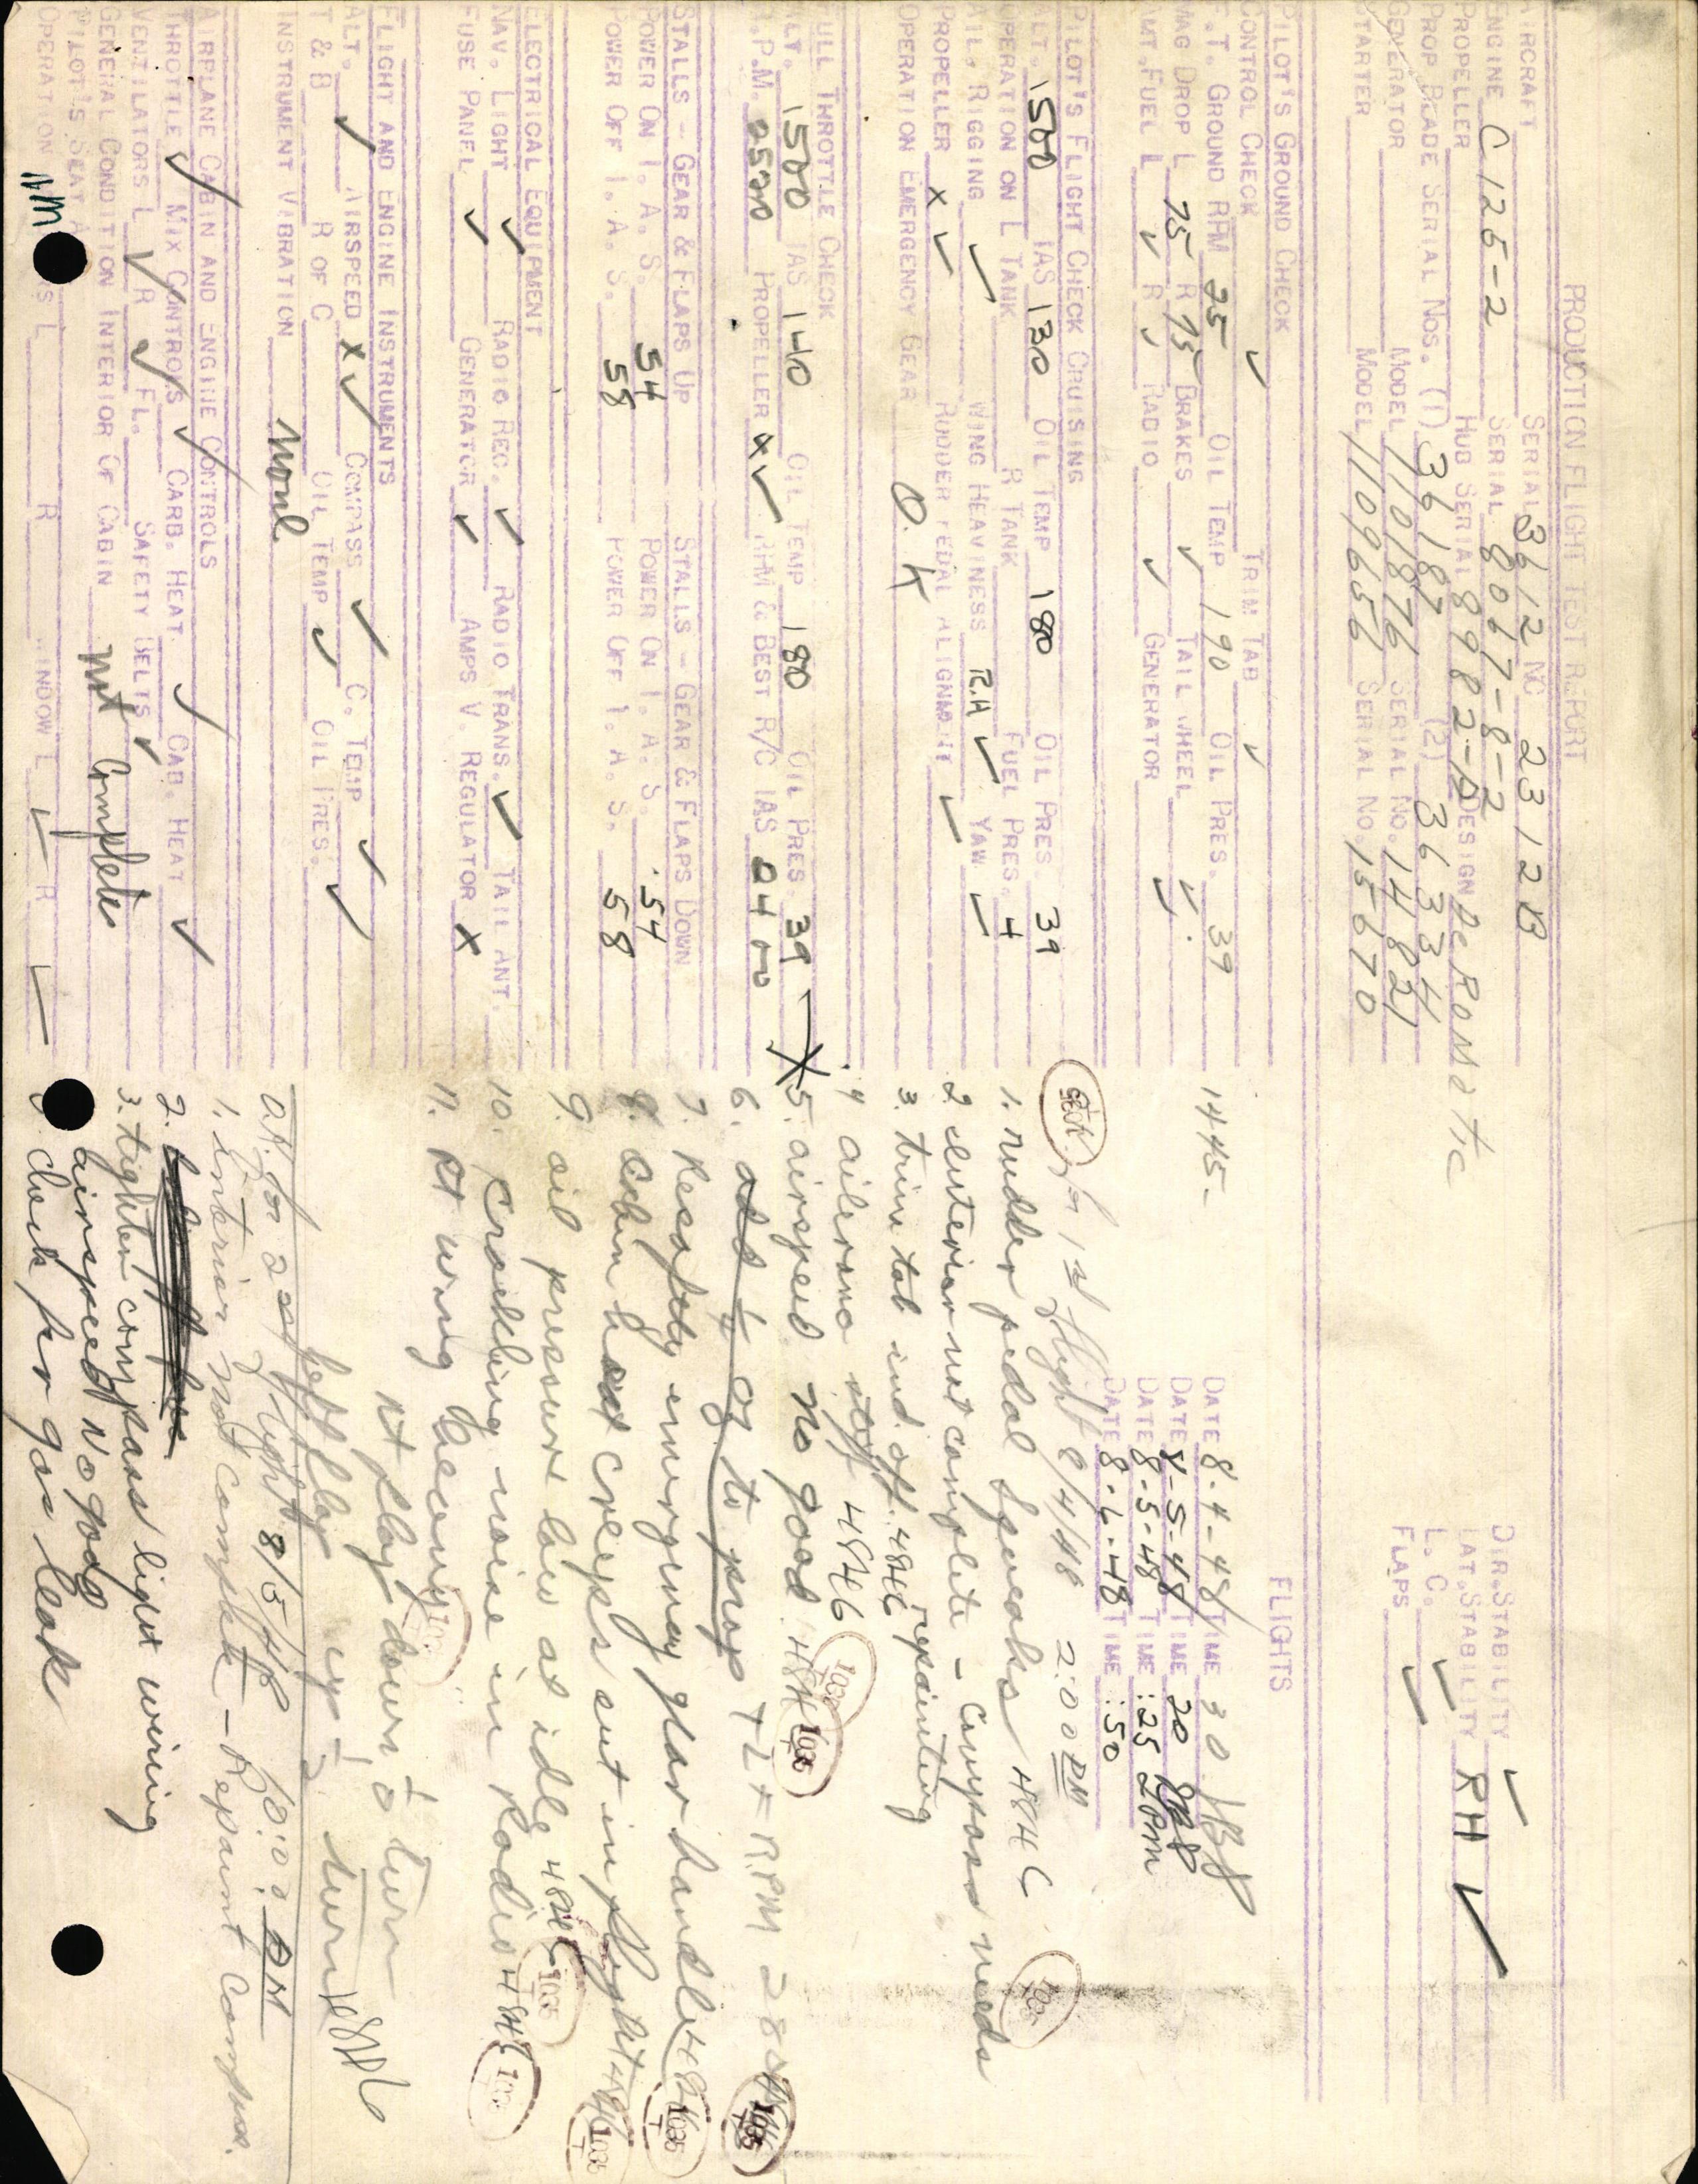 PRODUCTION FLIGHT TEST REPORT
AIRCRAFT SERIAL 3612 NC 2312B
ENGINE C125-2 SERIAL 8067-8-2
PROPELLER HUB SERIAL 8982-A DESIGN AeRomatic
PROP BLADE SERIAL NOS. (1) 36187 (2) 36334
GENERATOR MODEL 1101876 SERIAL NO. 14821
STARTER MODEL 1109656 SERIAL NO. 15670
DIR. STABILITY ✓
LAT. STABILITY RH ✓
L. C. ✓
FLAPS ✓
PILOT'S GROUND CHECK
CONTROL CHECK ✓ TRIM TAB ✓
S.T. GROUND RPM 25 OIL TEMP 190 OIL PRES. 39
MAG DROP L 75 R 75 BRAKES ✓ TAIL WHEEL ✓
AMT. FUEL L ✓ R ✓ RADIO ✓ GENERATOR ✓
FLIGHTS
1445-
DATE 8-4-48 TIME 30
DATE 8-5-48 TIME 20
DATE 8-5-48 TIME :25 2PM
DATE 8-6-48 TIME :50
PILOT'S FLIGHT CHECK CRUISING
ALT. 1500 IAS 130 OIL TEMP 180 OIL PRES. 39
OPERATION ON L TANK R TANK FUEL PRES. 4
AIL. RIGGING ✓ WING HEAVINESS R.H ✓ YAW ✓
PROPELLER X ✓ RUDDER PEDAL ALIGNMENT ✓
OPERATION EMERGENCY GEAR O.K
FULL THROTTLE CHECK
ALT. 1500 IAS 140 OIL TEMP 180 OIL PRES. 39
R.P.M. 2500 PROPELLER X ✓ RPM & BEST R/C IAS 2400
STALLS - GEAR & FLAPS UP STALLS - GEAR & FLAPS DOWN
POWER ON I. A. S. 54 POWER ON I. A. S. 54
POWER OFF I. A. S. 58 POWER OFF I. A. S. 58
ELECTRICAL EQUIPMENT
NAV. LIGHT ✓ RADIO REC. ✓ RADIO TRANS. ✓ TAIL ANT.
FUSE PANEL ✓ GENERATOR ✓ AMPS V. REGULATOR X
FLIGHT AND ENGINE INSTRUMENTS
ALT. ✓ AIRSPEED X ✓ COMPASS ✓ C. TEMP ✓
T & B R OF C OIL TEMP ✓ OIL PRES. ✓
INSTRUMENT VIBRATION None
AIRPLANE CABIN AND ENGINE CONTROLS
THROTTLE ✓ MIX CONTROLS ✓ CARB. HEAT ✓ CAB. HEAT ✓
VENTILATORS L ✓ R ✓ FL. SAFETY BELTS ✓
GENERAL CONDITION INTERIOR OF CABIN Not Complete
PILOT'S SEAT
OPERATION L R WINDOW L ✓ R ✓
O.K. for 1st flight 8/4/48 2:00 PM
1. rudder pedal squeaks 484C
2 interior not complete - Compass needs
repainting
3. trim tab ind. off. 484C
4 ailerons stiff 4846
5. airspeed no good 484C
6. add ½ oz to prop
7. Resafety emergency gear handle
8. Cabin heat creeps out in flight
9. oil pressure low at idle 484C
10. crackling noise in Radio 484C
11. Rt wing heavy
Rt flap down ½ turn
left flap up ½ turn
O.K. for 2nd flight 8/5/48 10:00 AM
1. interior not complete - Repaint Compass.
2.
3. tighten compass light wiring
airspeed No good
check for gas leak